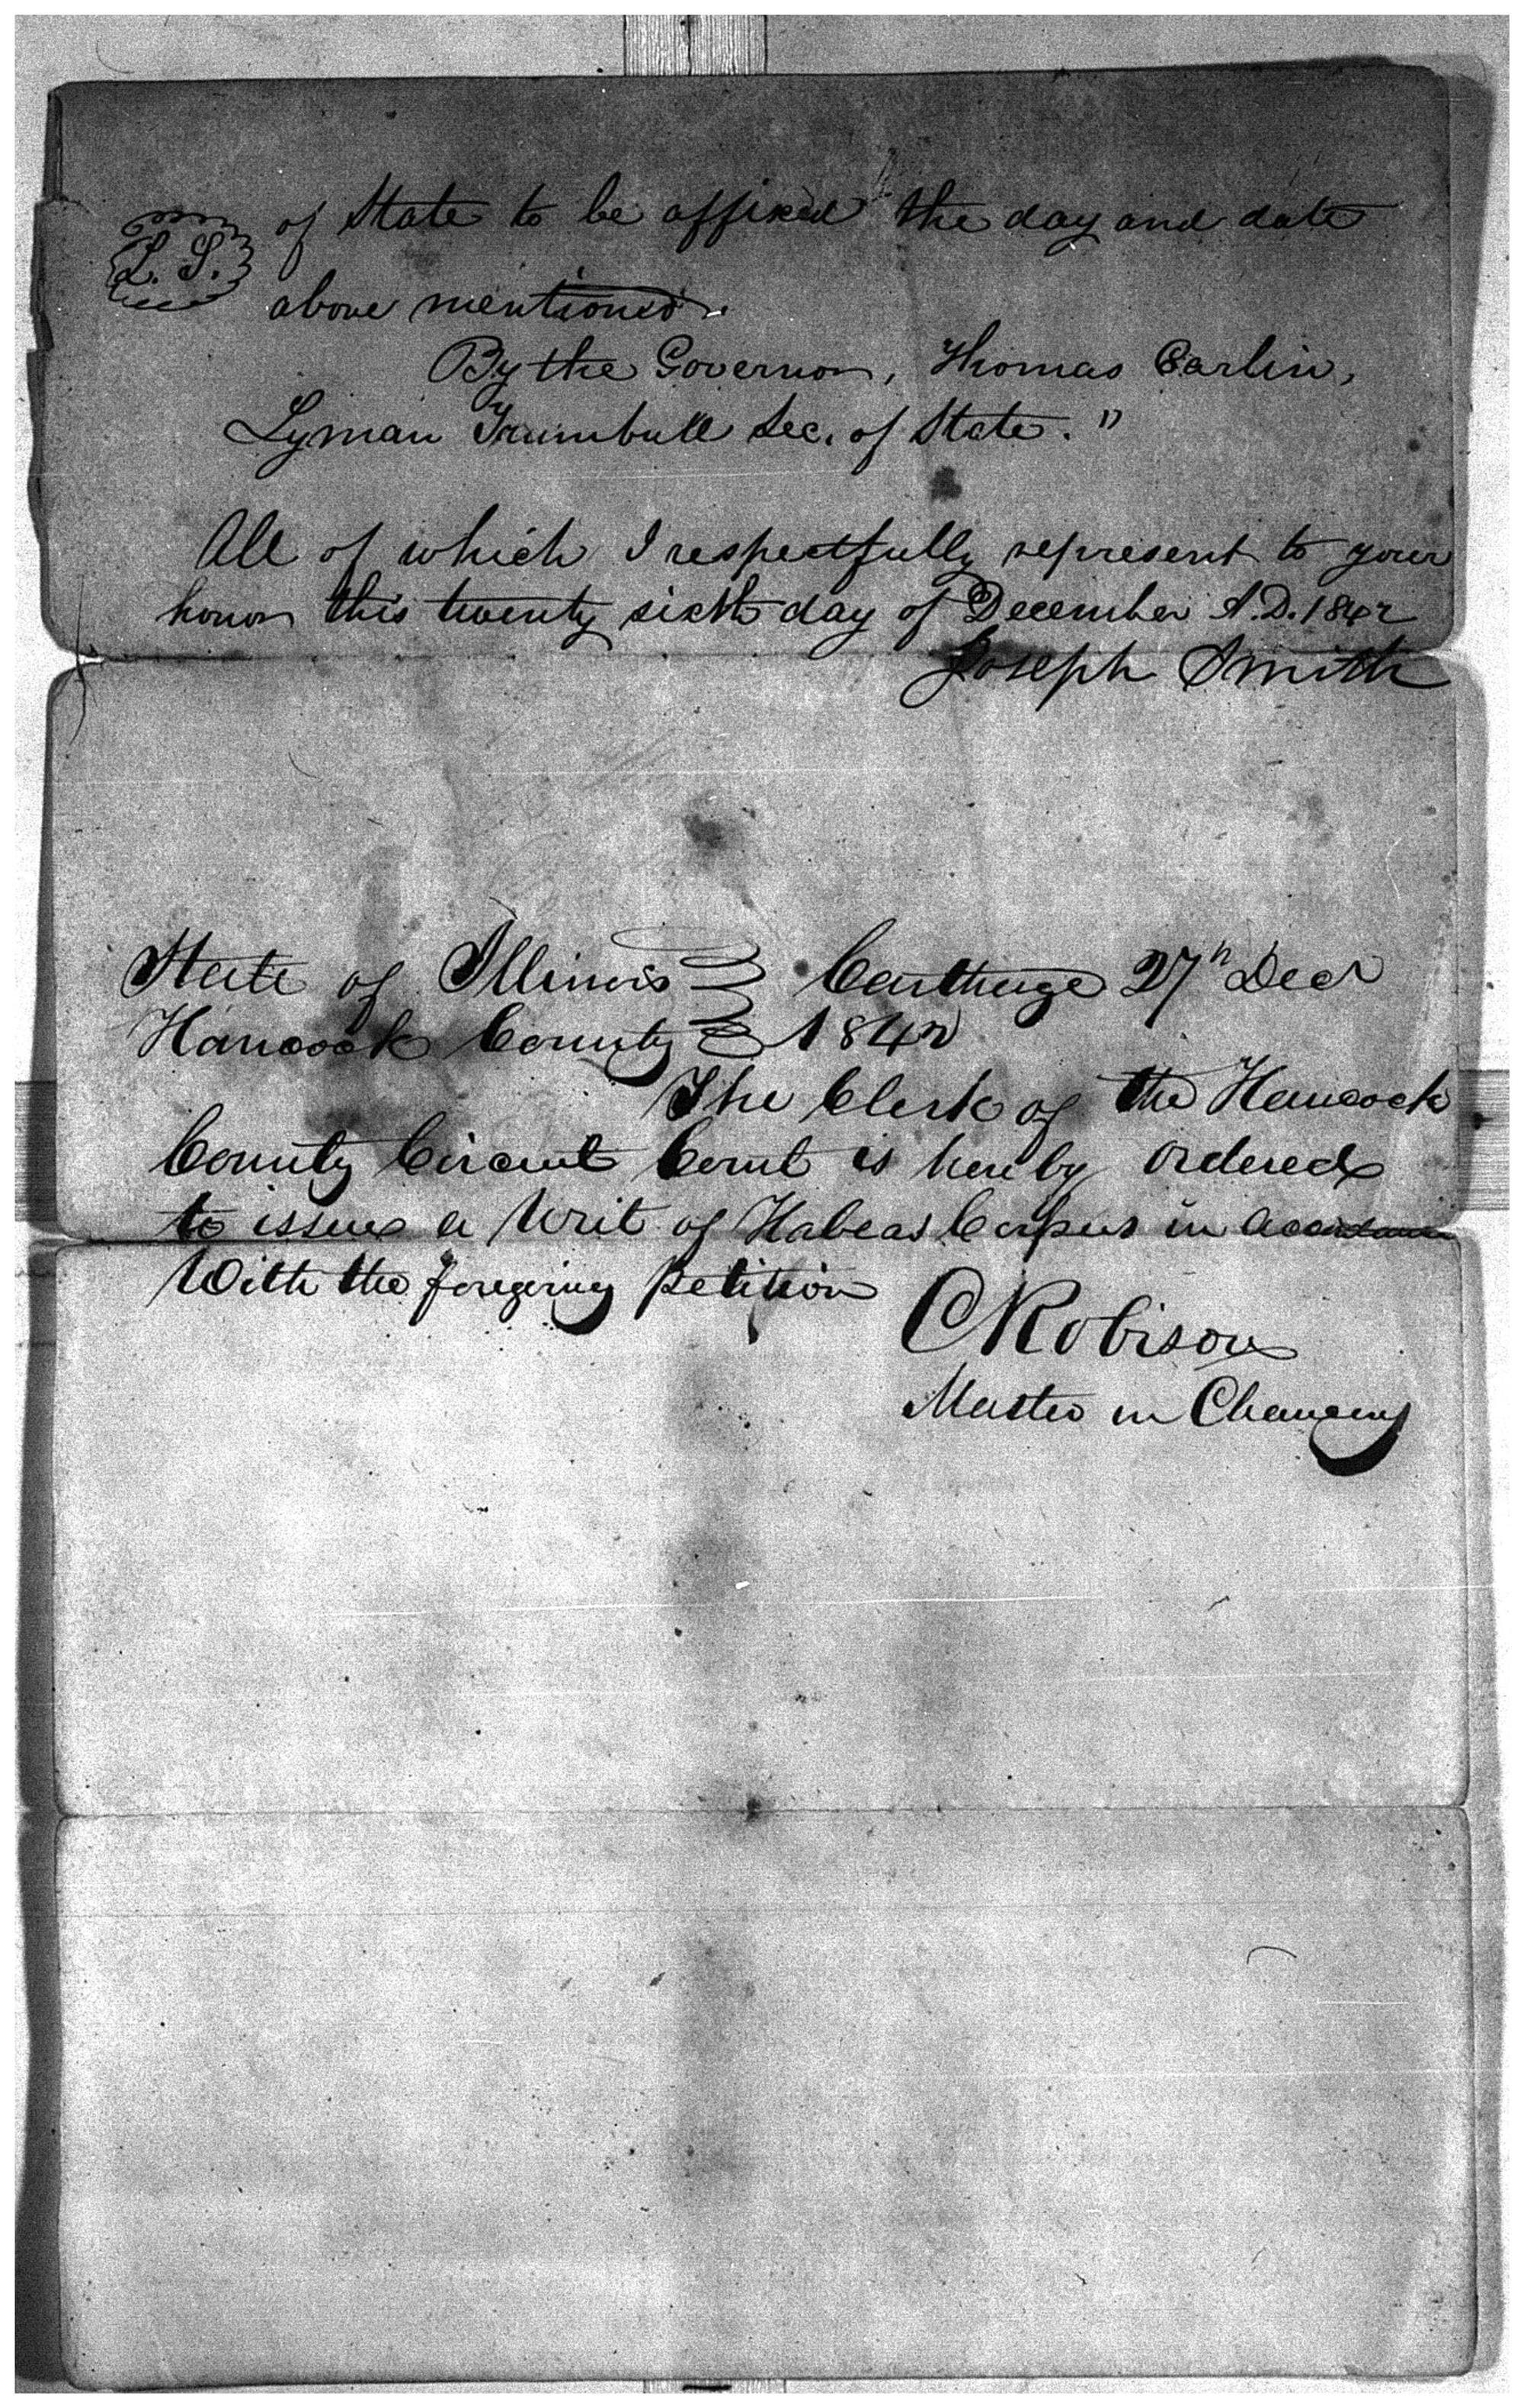 of State to be affixed the day and date
L. S.
above mentioned.
By the Governor, Thomas Carlin,
Lyman Trumbull Sec. of State."
All of which I respectfully represent to your
honor this twenty sixth day of December A.D. 1842
Joseph Smith
State of Illinois } Carthage 27th Decr
Hancock County } 1842
The Clerk of the Hancock
County Circuit Court is hereby ordered
to issue a Writ of Habeas Corpus in accordance
With the foregoing petition
C Robison
Master in Chancery